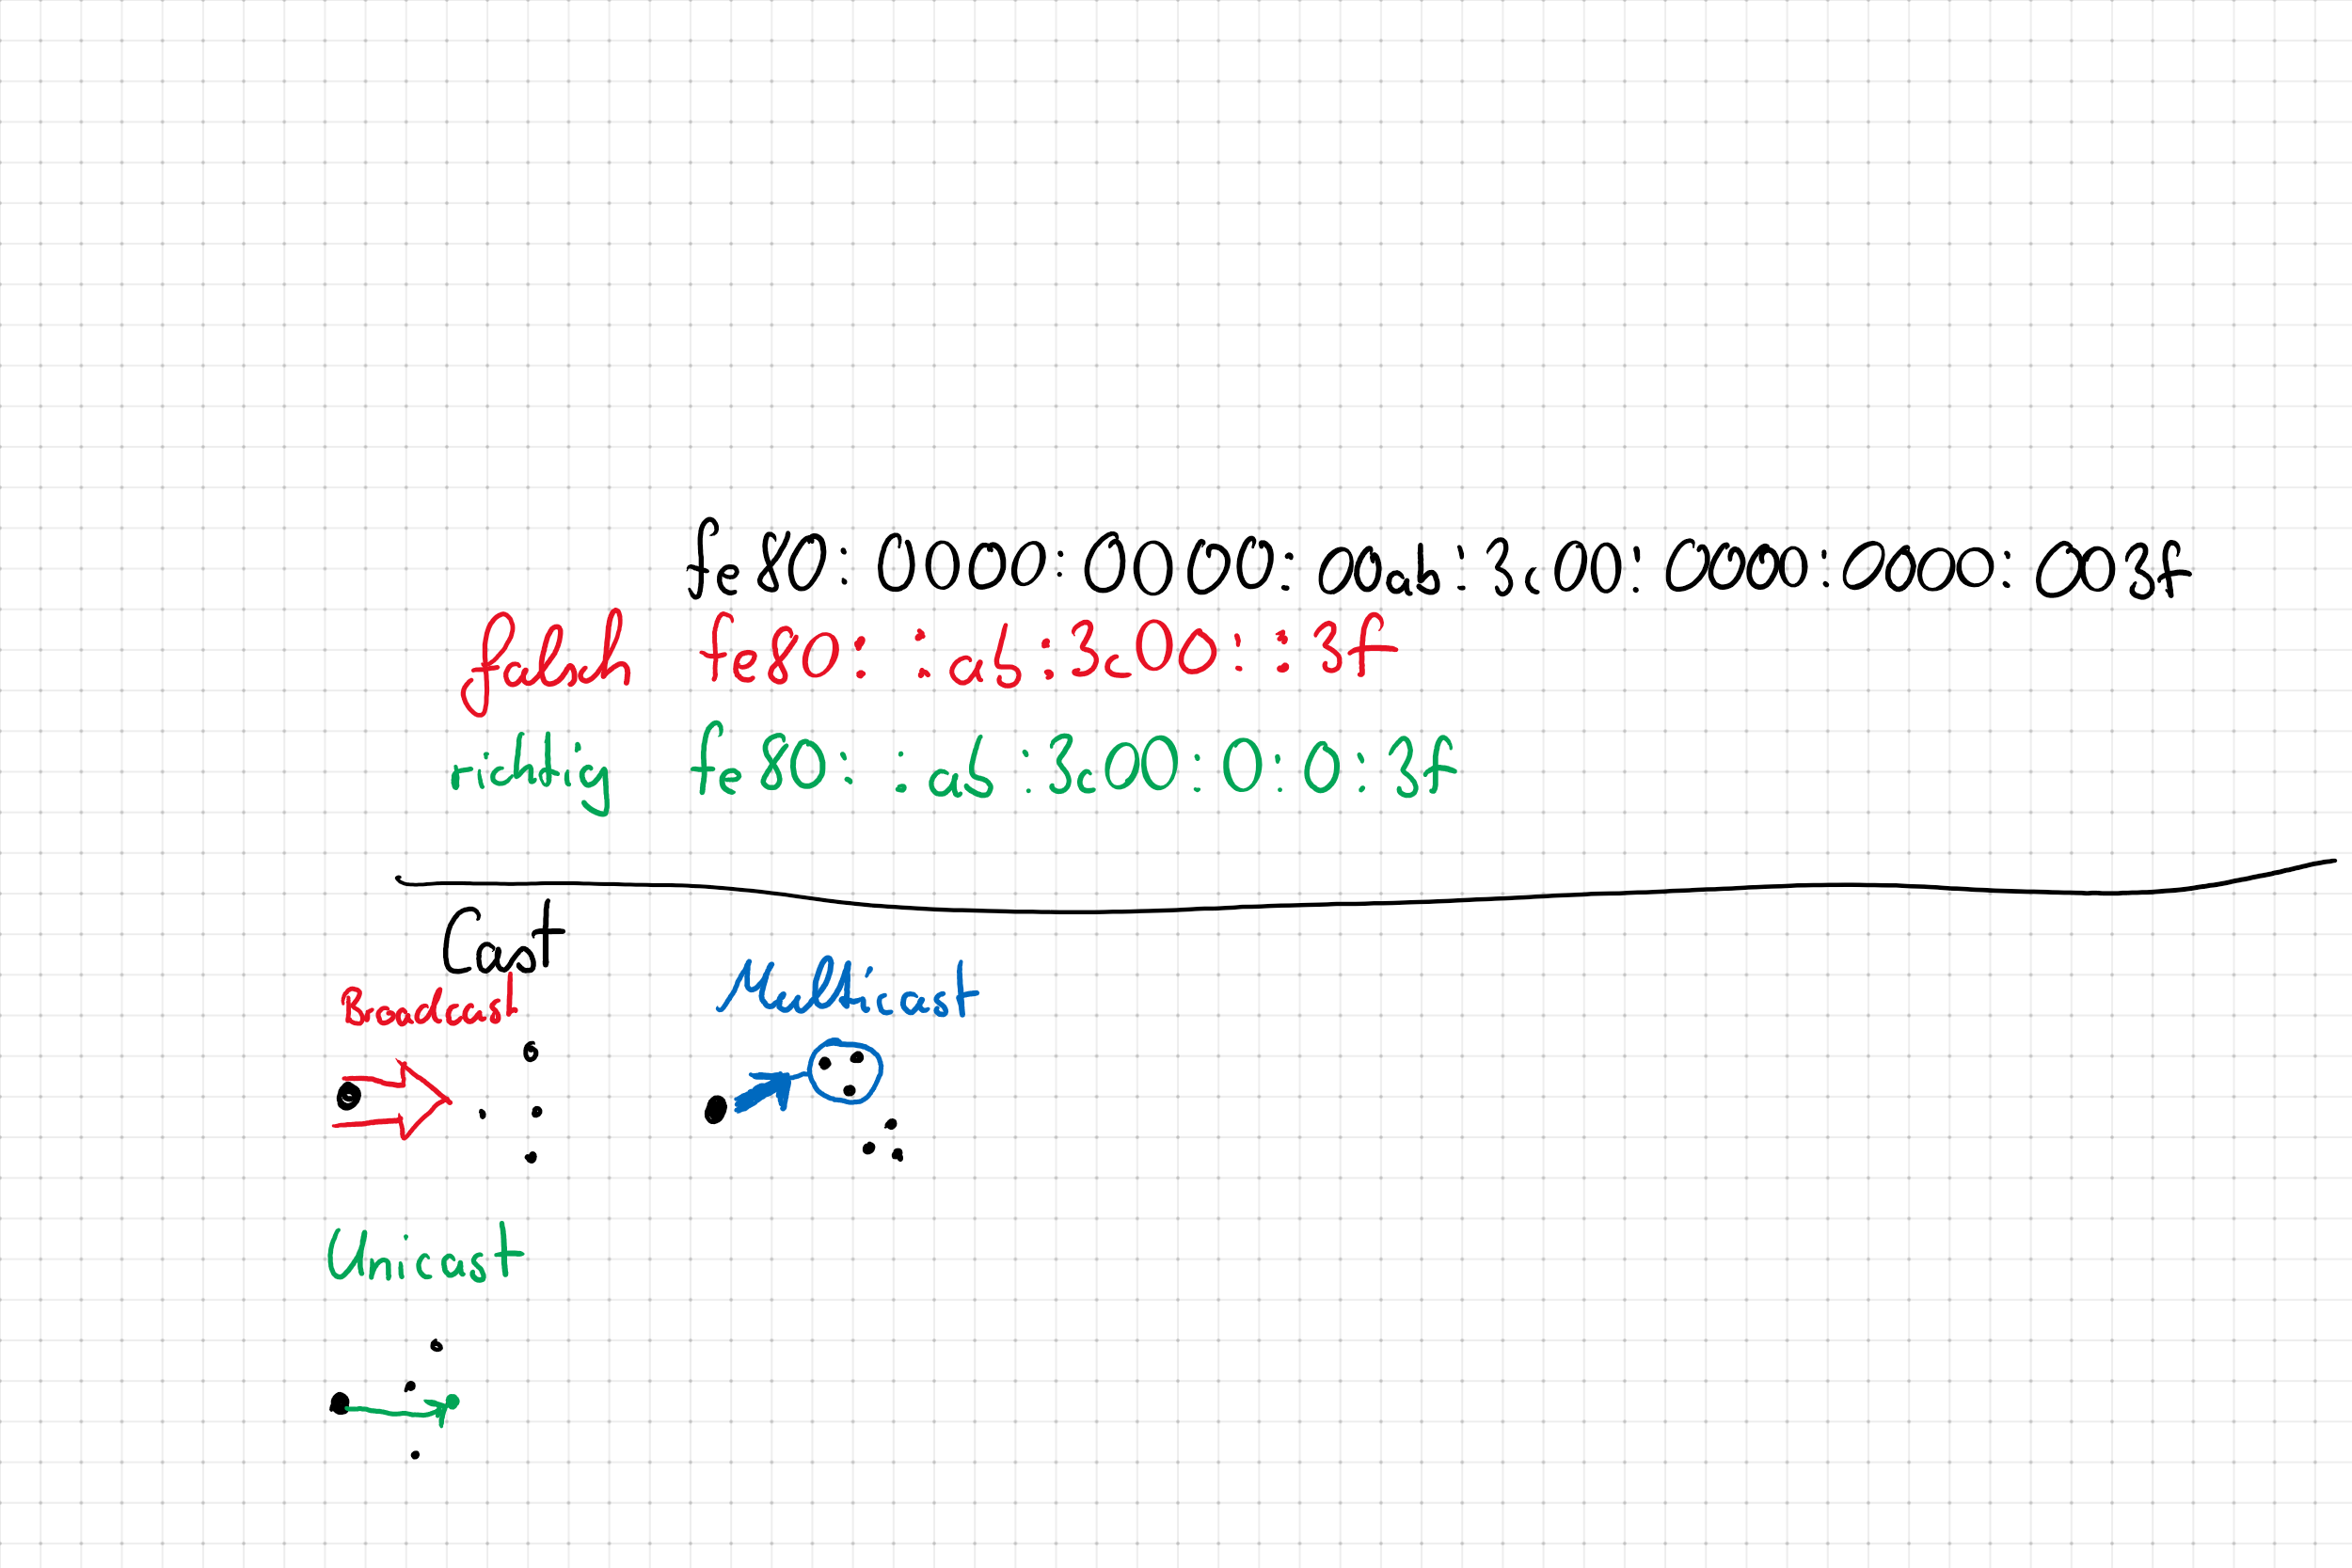 fe80:0000:0000:00ab:3c00:0000:0000:003f
falsch fe80::ab:3c00::3f
richtig fe80::ab:3c00:0:0:3f
Cast
Broadcast Multicast
Unicast